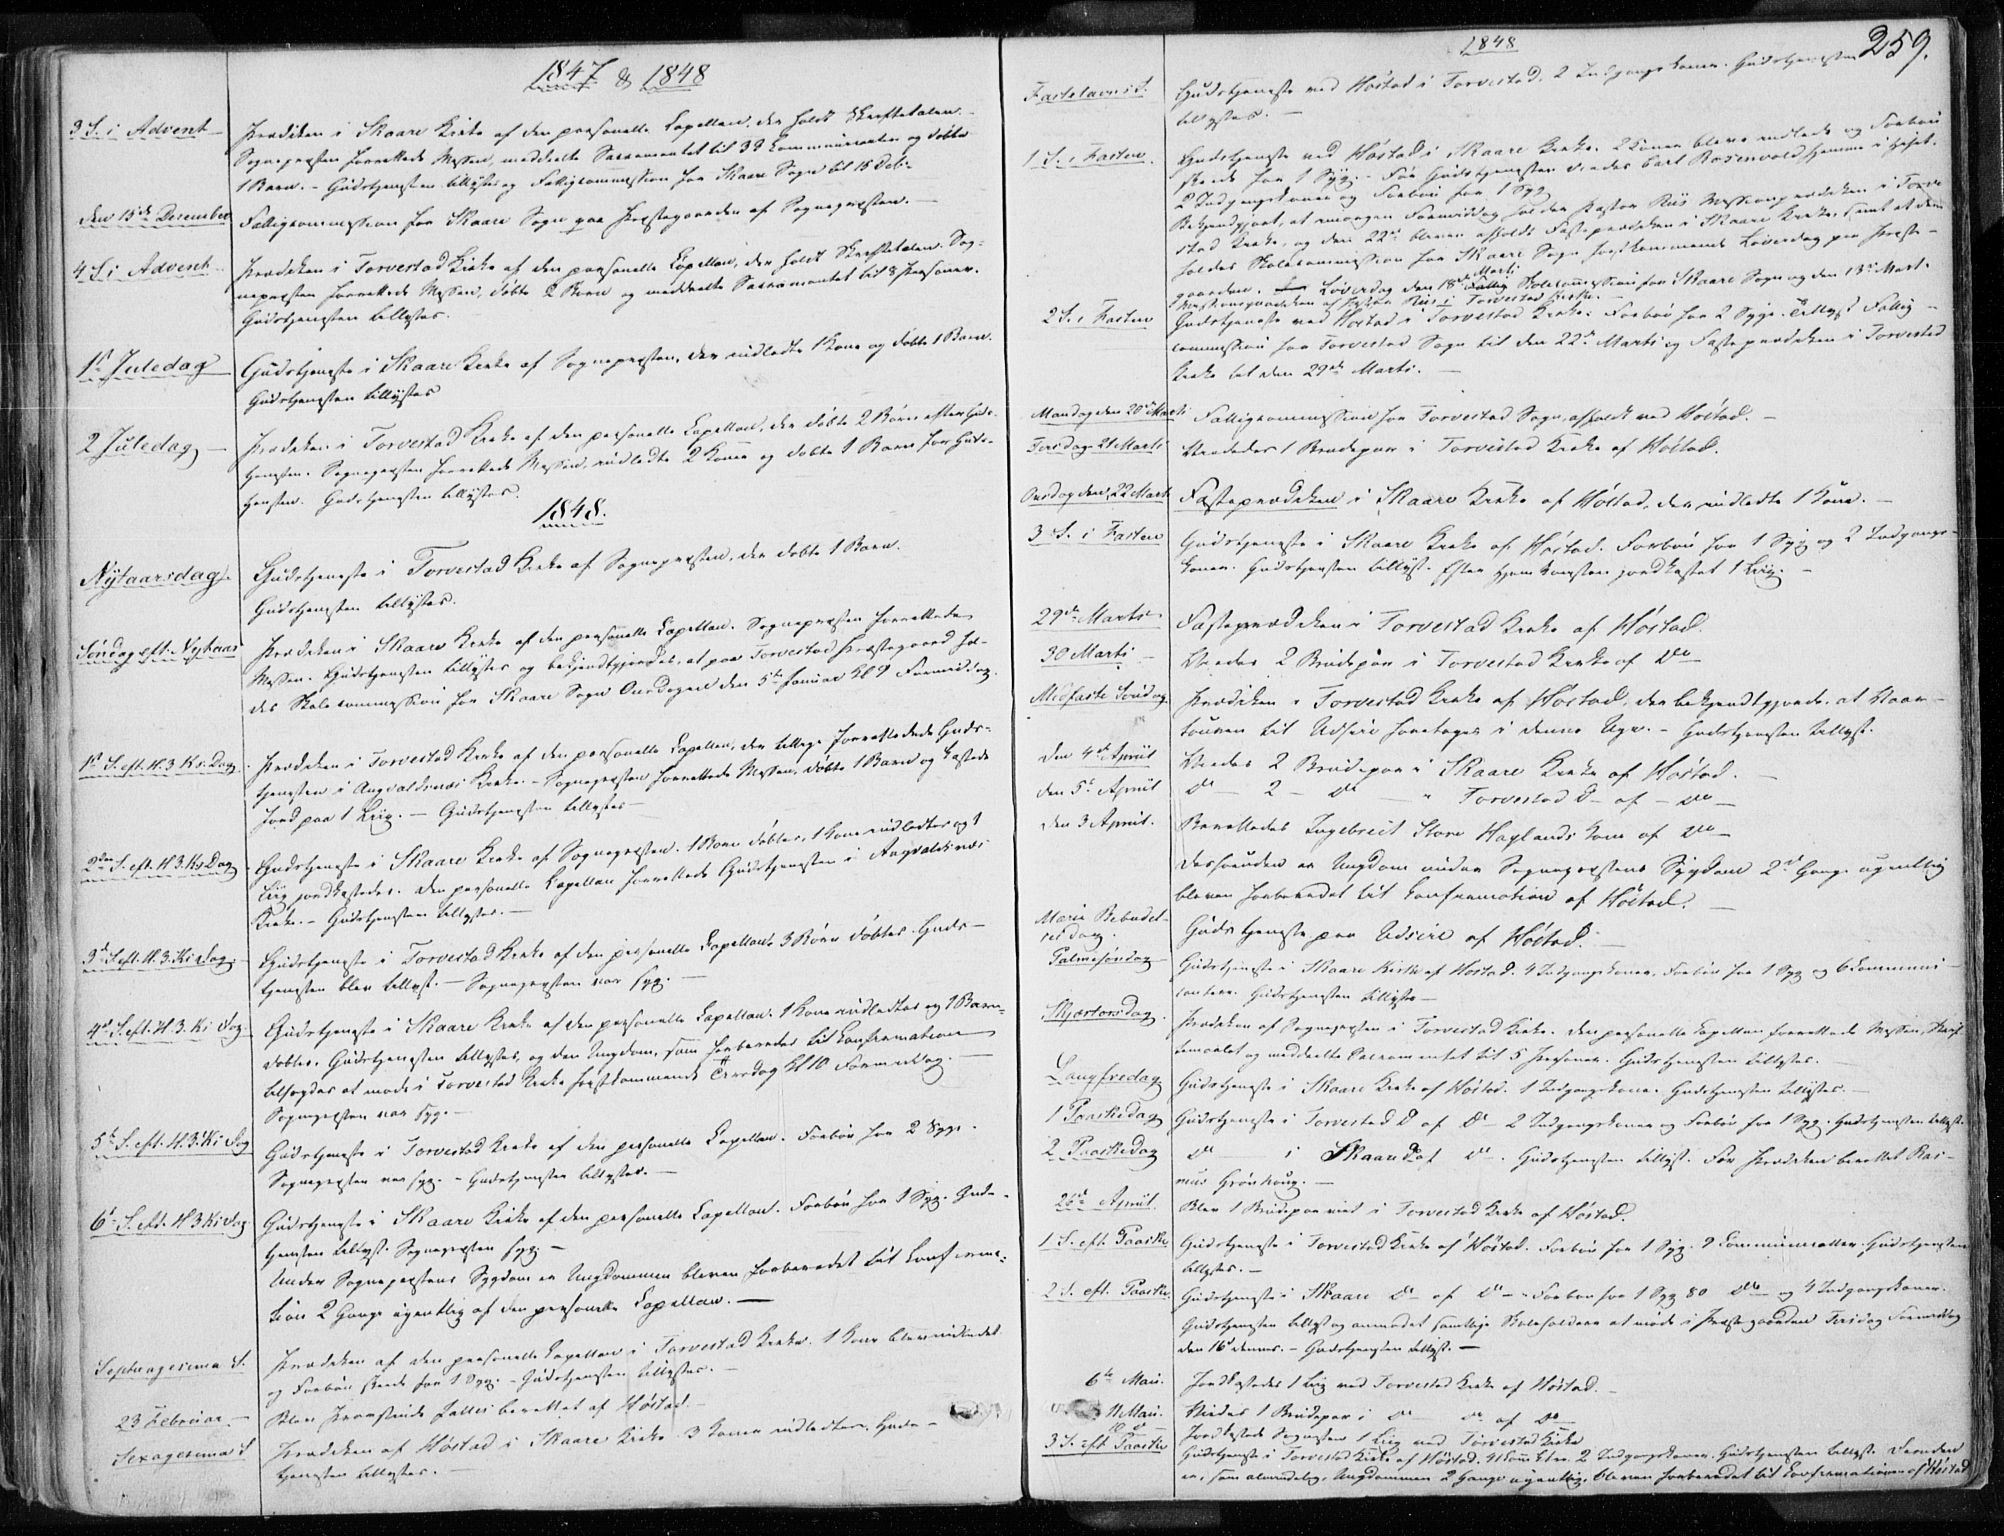 1847 & 1848
3 S. i Advent Prædiken i Skaare Kirke af den personelle Capellan, der holdt Skriftetalen.
Sognepræsten forrettede Messen, meddeelte Sacramentet til 33 Communicanter og døbte
1 Barn. – Gudstjenesten tillystes og Fattigcommission for Skaare Sogn til 15 Dec.
den 15de December Fattigcommission for Skaare Sogn paa Præstegaarden af Sognepræsten. –
4 S. i Advent Prædiken i Torvestad Kirke af den personelle Capellan, der holdt Skriftetalen. Sog-
nepræsten forrettede Messen, døbte 2 Børn og meddeelte Sacramentet til 8 Personer.
Gudstjenesten tillystes.
1ste Juledag Gudstjeneste i Skaare Kirke af Sognepræsten, der indledte 1 Kone og døbte 1 Barn.
Gudstjenesten tillystes
2 Juledag – Prædiken i Torvestad Kirke af den personelle Capellan, der døbte 2 Børn efter Guds-
tjenesten. Sognepræsten forrettede Messen, indledte 2 Koner og døbte 1 Barn før Guds-
tjenesten. Gudstjenesten tillystes.
1848.
Nytaarsdag. Gudstjeneste i Torvestad Kirke af Sognepræsten, der døbte 1 Barn.
Gudstjenesten tillystes.
Søndag eft. Nytaar Prædiken i Skaare Kirke af den personelle Capellan. Sognepræsten forrettede
Messen. Gudstjenesten tillystes og bekjendtgjordes, at paa Torvestad Præstegaard hol-
des Skolecommission for Skaare Sogn Onsdagen den 5te Januar Kl 9 Formiddag.
1ste S. eft. H. 3 K. Dag Prædiken i Torvestad Kirke af den personelle Capellan, der tillige forrettede Guds-
tjenesten i Augvaldsnæs Kirke. – Sognepræsten forrettede Messen, døbte 1 Barn og kastede
Jord paa 1 Liig. – Gudstjenesten tillystes –
2den S. eft. H. 3. K. Dag Gudstjeneste i Skaare Kirke af Sognepræsten. 1 Barn døbtes, 1 Kone indledtes og 1
Liig jordkastedes. Den personelle Capellan forrettede Gudstjenesten i Augvaldsnæs
Kirke. – Gudstjenesten tillystes. –
3de S. eft. H. 3. K. Dag. Gudstjeneste i Torvestad Kirke af den personelle Capellan. 3 Børn døbtes. Guds-
tjenesten blev tillyst. – Sognepræsten var syg. –
4de S. eft. H. 3. K. Dag Gudstjeneste i Skaare Kirke af den personelle Capellan. 1 Kone indledtes og 1 Barn
døbtes. Gudstjenesten tillystes, og den Ungdom, som forberedes til Confirmation
tilsagdes at møde i Torvestad Kirke førstkommende Tirsdag Kl 10 Formiddag. –
Sognepræsten var syg. –
5te S. eft. H. 3. K. Dag Gudstjeneste i Torvestad Kirke af den personelle Capellan. Forbøn for 2 Syge.
Sognepræsten var syg. – Gudstjenesten tillystes. –
6te S. eft. H 3 K. Dag Gudstjeneste i Skaare Kirke af den personelle Capellan. Forbøn for 1 Syg. Guds-
tjenesten tillyst. Sognepræsten syg. –
Under Sognepræstens Sygdom er Ungdommen bleven forberedet til Confirma-
tion 2 Gange ugentlig af den personelle Capellan. –
Septuagesima S. Prædiken af den personelle Capellan i Torvestad Kirke. 1 Kone blev indledet
og Forbøn skeede for 1 Syg. – Gudstjenesten tillystes. –
23 Februar. – Blev berettet af Høstad. –
Sexagesima S Prædiken af Høstad i Skaare Kirke. 3 Koner indledtes. Guds-
tjenesten tillystes. –
1848
259.
Fastelavns S. Gudstjeneste ved Høstad i Torvestad. 2 Indgangskoner. Gudstjenesten
tillystes. –
1 S. i Fasten. Gudstjeneste ved Høstad i Skaare Kirke. 2 Koner bleve indledte og Forbøn
skeede for 1 Syg. – Før Gudstjenesten viedes Carl Rosenvold hjemme i Huset.
2 Indgangskoner og Forbøn for 1 Syg
Bekjendtgjort, at imorgen Formiddag holder Pastor Riis Missionsprædiken i Torve
stad Kirke, og den 22de bliver afholdt Fasteprædiken i Skaare Kirke, samt at der
holdes Skolecommission for Skaare Sogn førstkommende Løverdag paa Præste-
gaarden. – Løverdag den 18de Marti Skolecommission for Skaare Sogn og den 13de Marti
Missionsprædiken af Pastor Riis i Torvestad Kirke. –
2 S. i Fasten Gudstjeneste ved Høstad i Torvestad Kirke. Forbøn for 2 Syge. Tillyst Fattig-
commission for Torvestad Sogn til den 22de Marti og Fasteprædiken i Torvestad
Kirke til den 29de Marti. –
Mandag den 20de Marti Fattigcommission for Torvestad Sogn, afholdt ved Høstad. –
Tirsdag 21 Marti Viedes 1 Brudepar i Torvestad Kirke af Høstad.
Onsdag den 22 Marti Fasteprædiken i Skaare Kirke af Høstad, der indledte 1 Kone. –
3 S. i Fasten Gudstjeneste i Skaare Kirke af Høstad. Forbøn for 1 Syg og 2 Indgangs-
koner. Gudstjenesten tillyst. Efter Hjemkomsten jordkastet 1 Liig. –
29de Marti Fasteprædiken i Torvestad Kirke af Høstad.
30 Marti – Viedes 2 Brudepar i Torvestad Kirke af Do
Midfaste Søndag Prædiken i Torvestad Kirke af Høstad, der bekjendtgjorde, at Vaar-
touren til Udsire foretages i denne Uge. – Gudstjenesten tillyst.
den 4de April Viedes 2 Brudepar i Skaare Kirke af Høstad. –
den 5te April Do – 2 – Do – " Torvestad D – af – Do –
den 3 April. Berettedes Ingebreit Store Haylands Kone af Do –
Desforuden er Ungdom under Sognepræstens Sygdom 2de Gange ugentlig
bleven forberedet til Confirmation af Høstad. –
Mariæ Bebudel-
ses dag. Gudstjeneste paa Udsire af Høstad. –
Palmesøndag Gudstjeneste i Skaare Kirke af Høstad. 4 Indgangskoner, Forbøn for 1 Syg og 6 Communi-
canter. Gudstjenesten tillyste –
Skjærtorsdag. Prædiken af Sognepræsten i Torvestad Kirke. Den personelle Capellan forrettede Messen, Skrif
temaalet og meddeelte Sacramentet til 5 Personer. Gudstjenesten tillystes. –
Langfredag Gudstjeneste i Skaare Kirke af Høstad. 1 Indgangskone. Gudstjenesten tillystes. –
1 Paaskedag Gudstjeneste i Torvestad D af Do – 2 Indgangskoner og Forbøn for 1 Syg. Gudstjenesten tillyst.
2 Paaskedag Do – i Skaare D af Do. Gudstjenesten tillyst. Før Prædiken berettet Ras-
mus Grønhoug. –
26de April. Blev 1 Brudepar viet i Torvestad Kirke af Høstad.
1 S. eft. Paaske Gudstjeneste i Torvestad Kirke af Høstad. Forbøn for 1 Syg. 9 Communicanter. Gudstjenesten
tillystes. –
2 S. eft. Paaske. Gudstjeneste i Skaare Do af Do – Forbøn for 1 Syg 80 Do og 4 Indgangskoner.
Gudstjenesten tillyst og anmodet samtlige Skoleholdere at møde i Præstegaarden Tirsdag Formiddag
den 16de dennes. – Gudstjenesten tillyst. –
6te Mai. Jordkastedes 1 Liig ved Torvestad Kirke af Høstad. –
11 Mai. Viedes 1 Brudepar i Do – Do af Do
Jordkastede Sognepræsten 1 Liig ved Torvestad Kirke
3 S. eft Paaske Gudstjeneste i Torvestad Kirke af Høstad. 41 Comctr. 2 Indgangskoner. Gudstjenesten tillyst. Desuden
er, som almindelig, Ungdommen 2 Gange ugentlig bleven forberedet til Confirmationen af Høstad